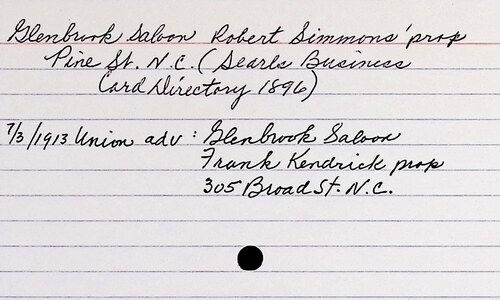 Glenbrook Saloon Robert Simmons' prop
Pine St. N.C. (Searls Business
Card Directory 1896)
7/3/1913 Union adv: Glenbrook Saloon
Frank Kendrick prop
305 Broad St. N.C.